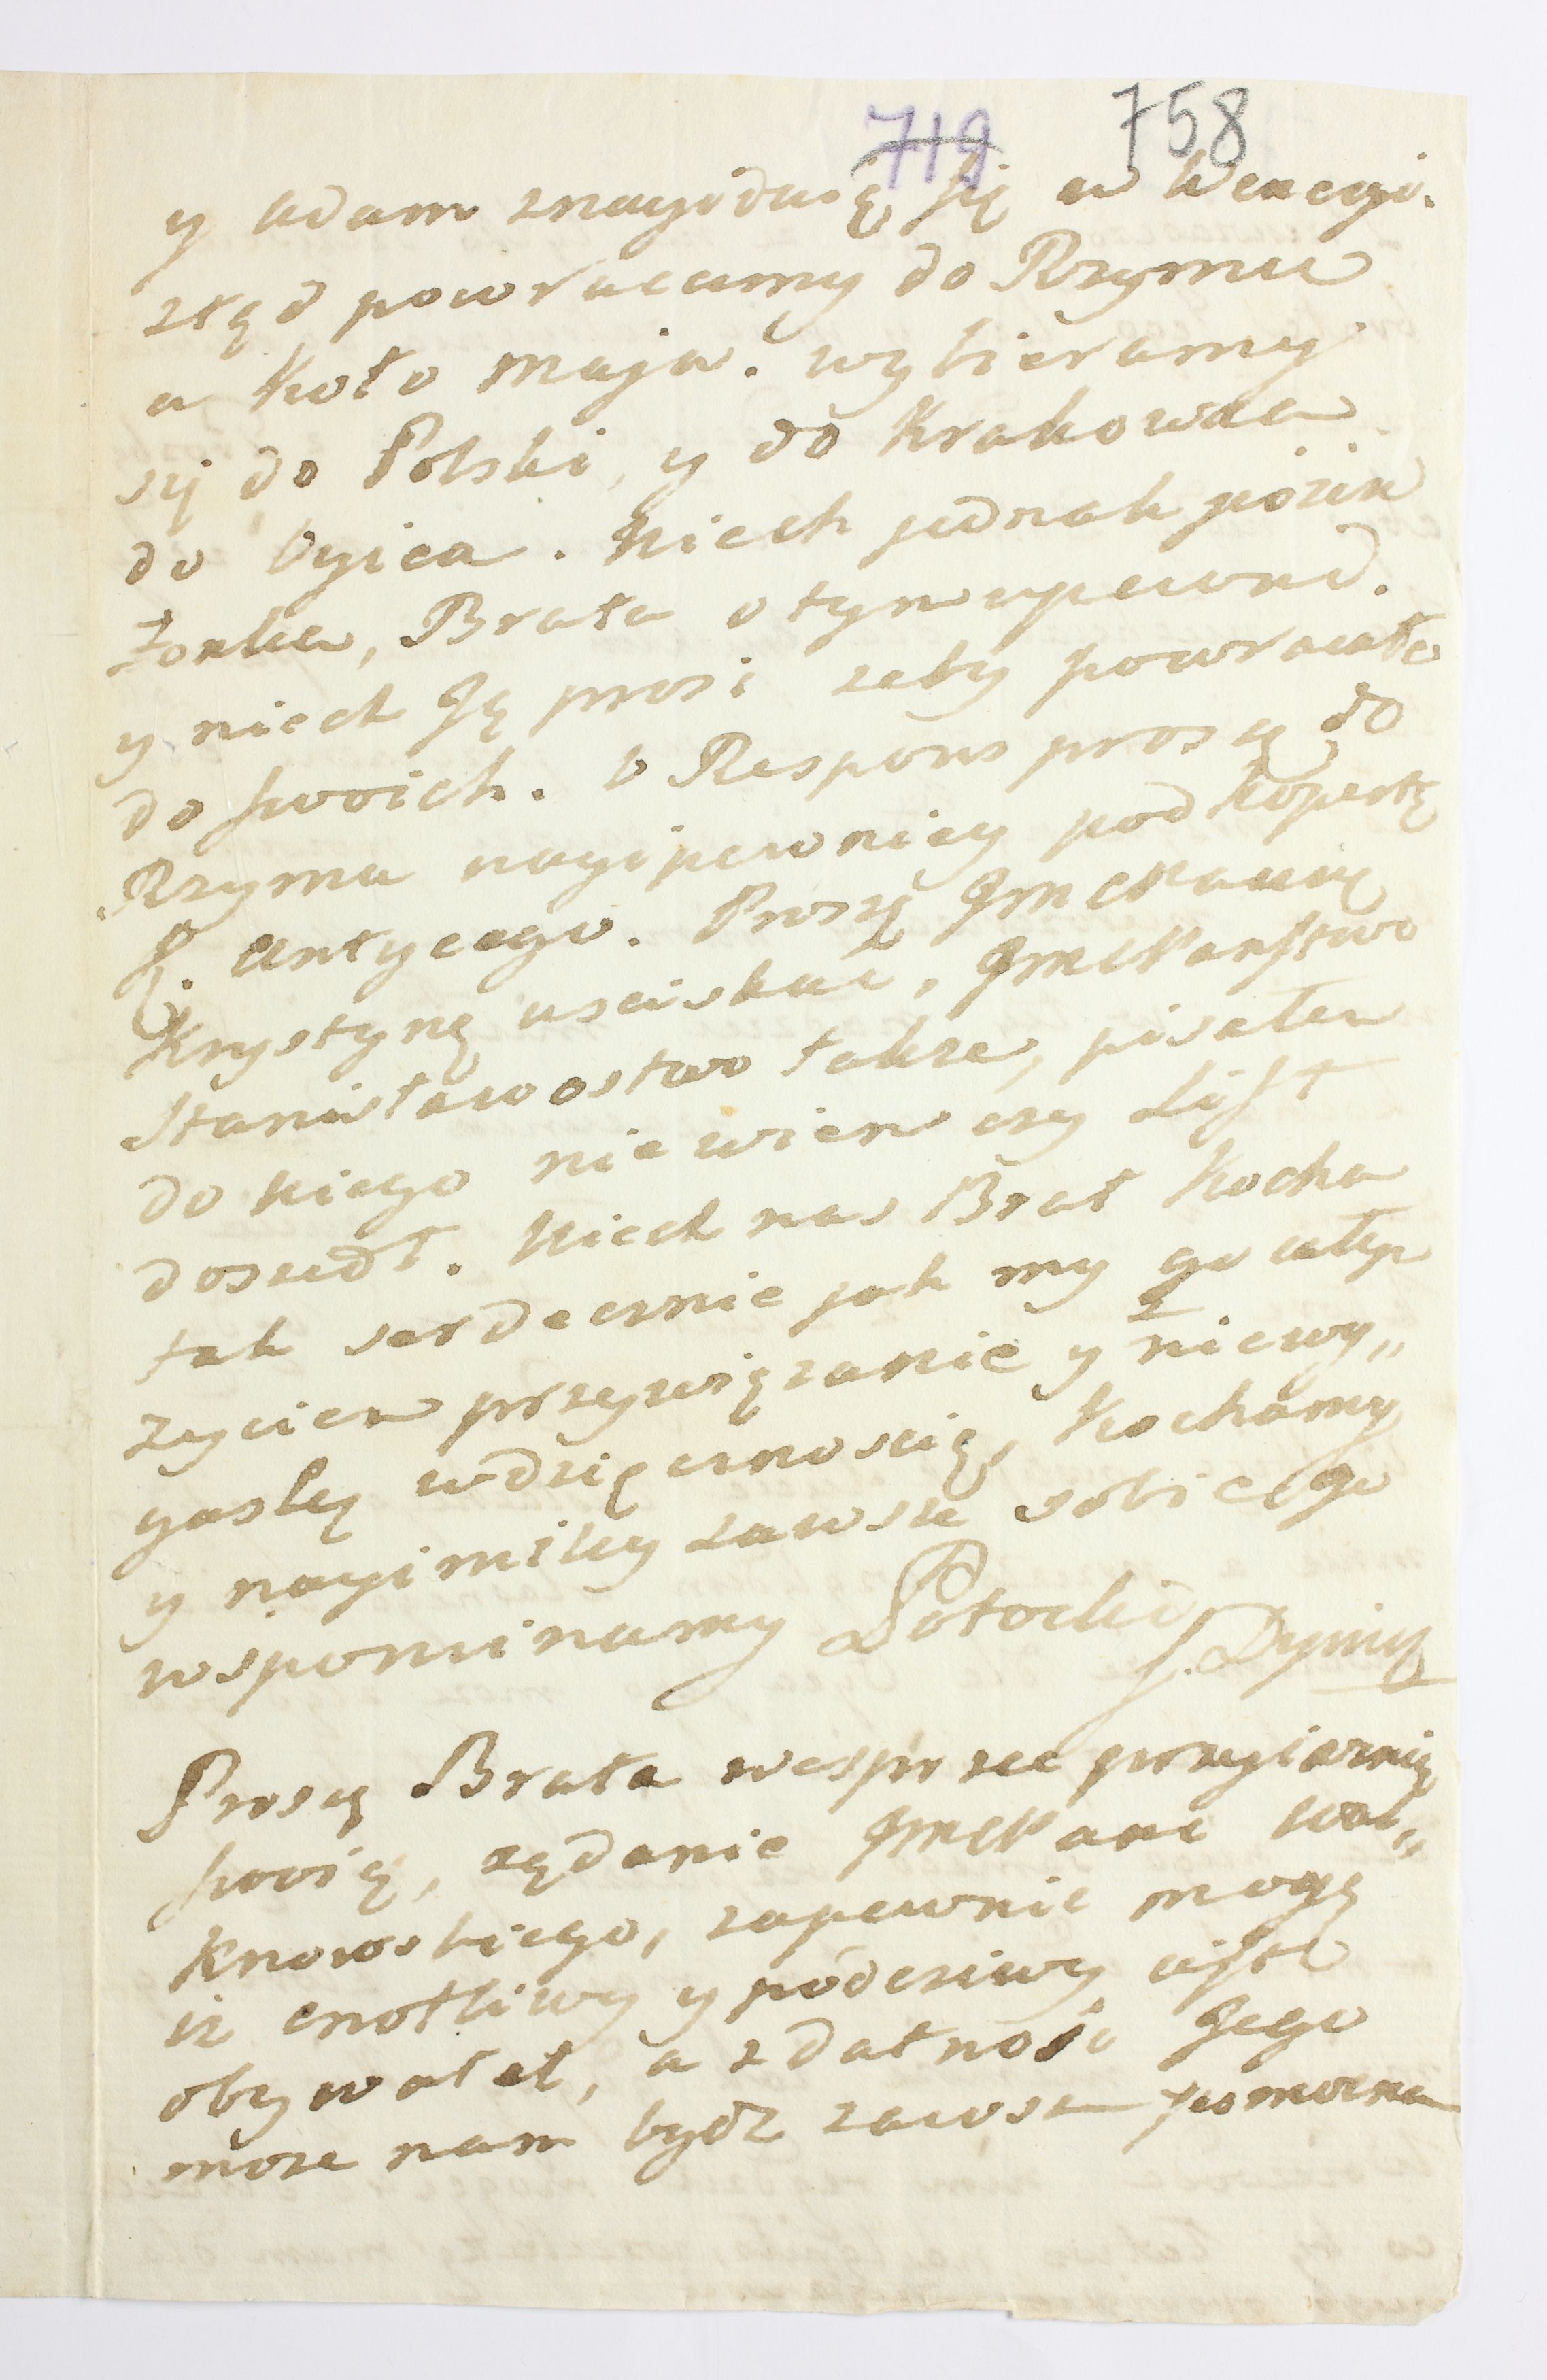 719 758
y Adam znayiduię się w Wenecyi.
ztąd powracamy do Rzymu
a koło maja. wybieramy
się do Polski, y do Krakowca
do Oyica. Niech jednak
Zonka, Brata o tym upewni.
y niech Ję prosi zeby powracała
do swoich. O Respons proszę do
Rzymu nayipewniey pod kopertę
P. Antycego. Proszę JMCPannę
Krystynę usciskac, JMCPanstwo
Stanisławostwo takze, pisałem
do niego nie wiem czy List
doszedł. Niech nas Brat kocha
tak serdecznie jak my go całym
zyciem przywięzanie y niewy„
gasłę wdzięcznoscię, kochamy
y nayimiley zawsze sobie go
wspominamy Potocki
Proszę Brata wesprzec przyiaznię
swoię, ządanie JMCPana Woł„
knowskiego, zapewnic mogę
iz cnotliwy y pódcziwy iest
obywatel, a zdatnosc Jego
moze nam bydz zawsze pomocna